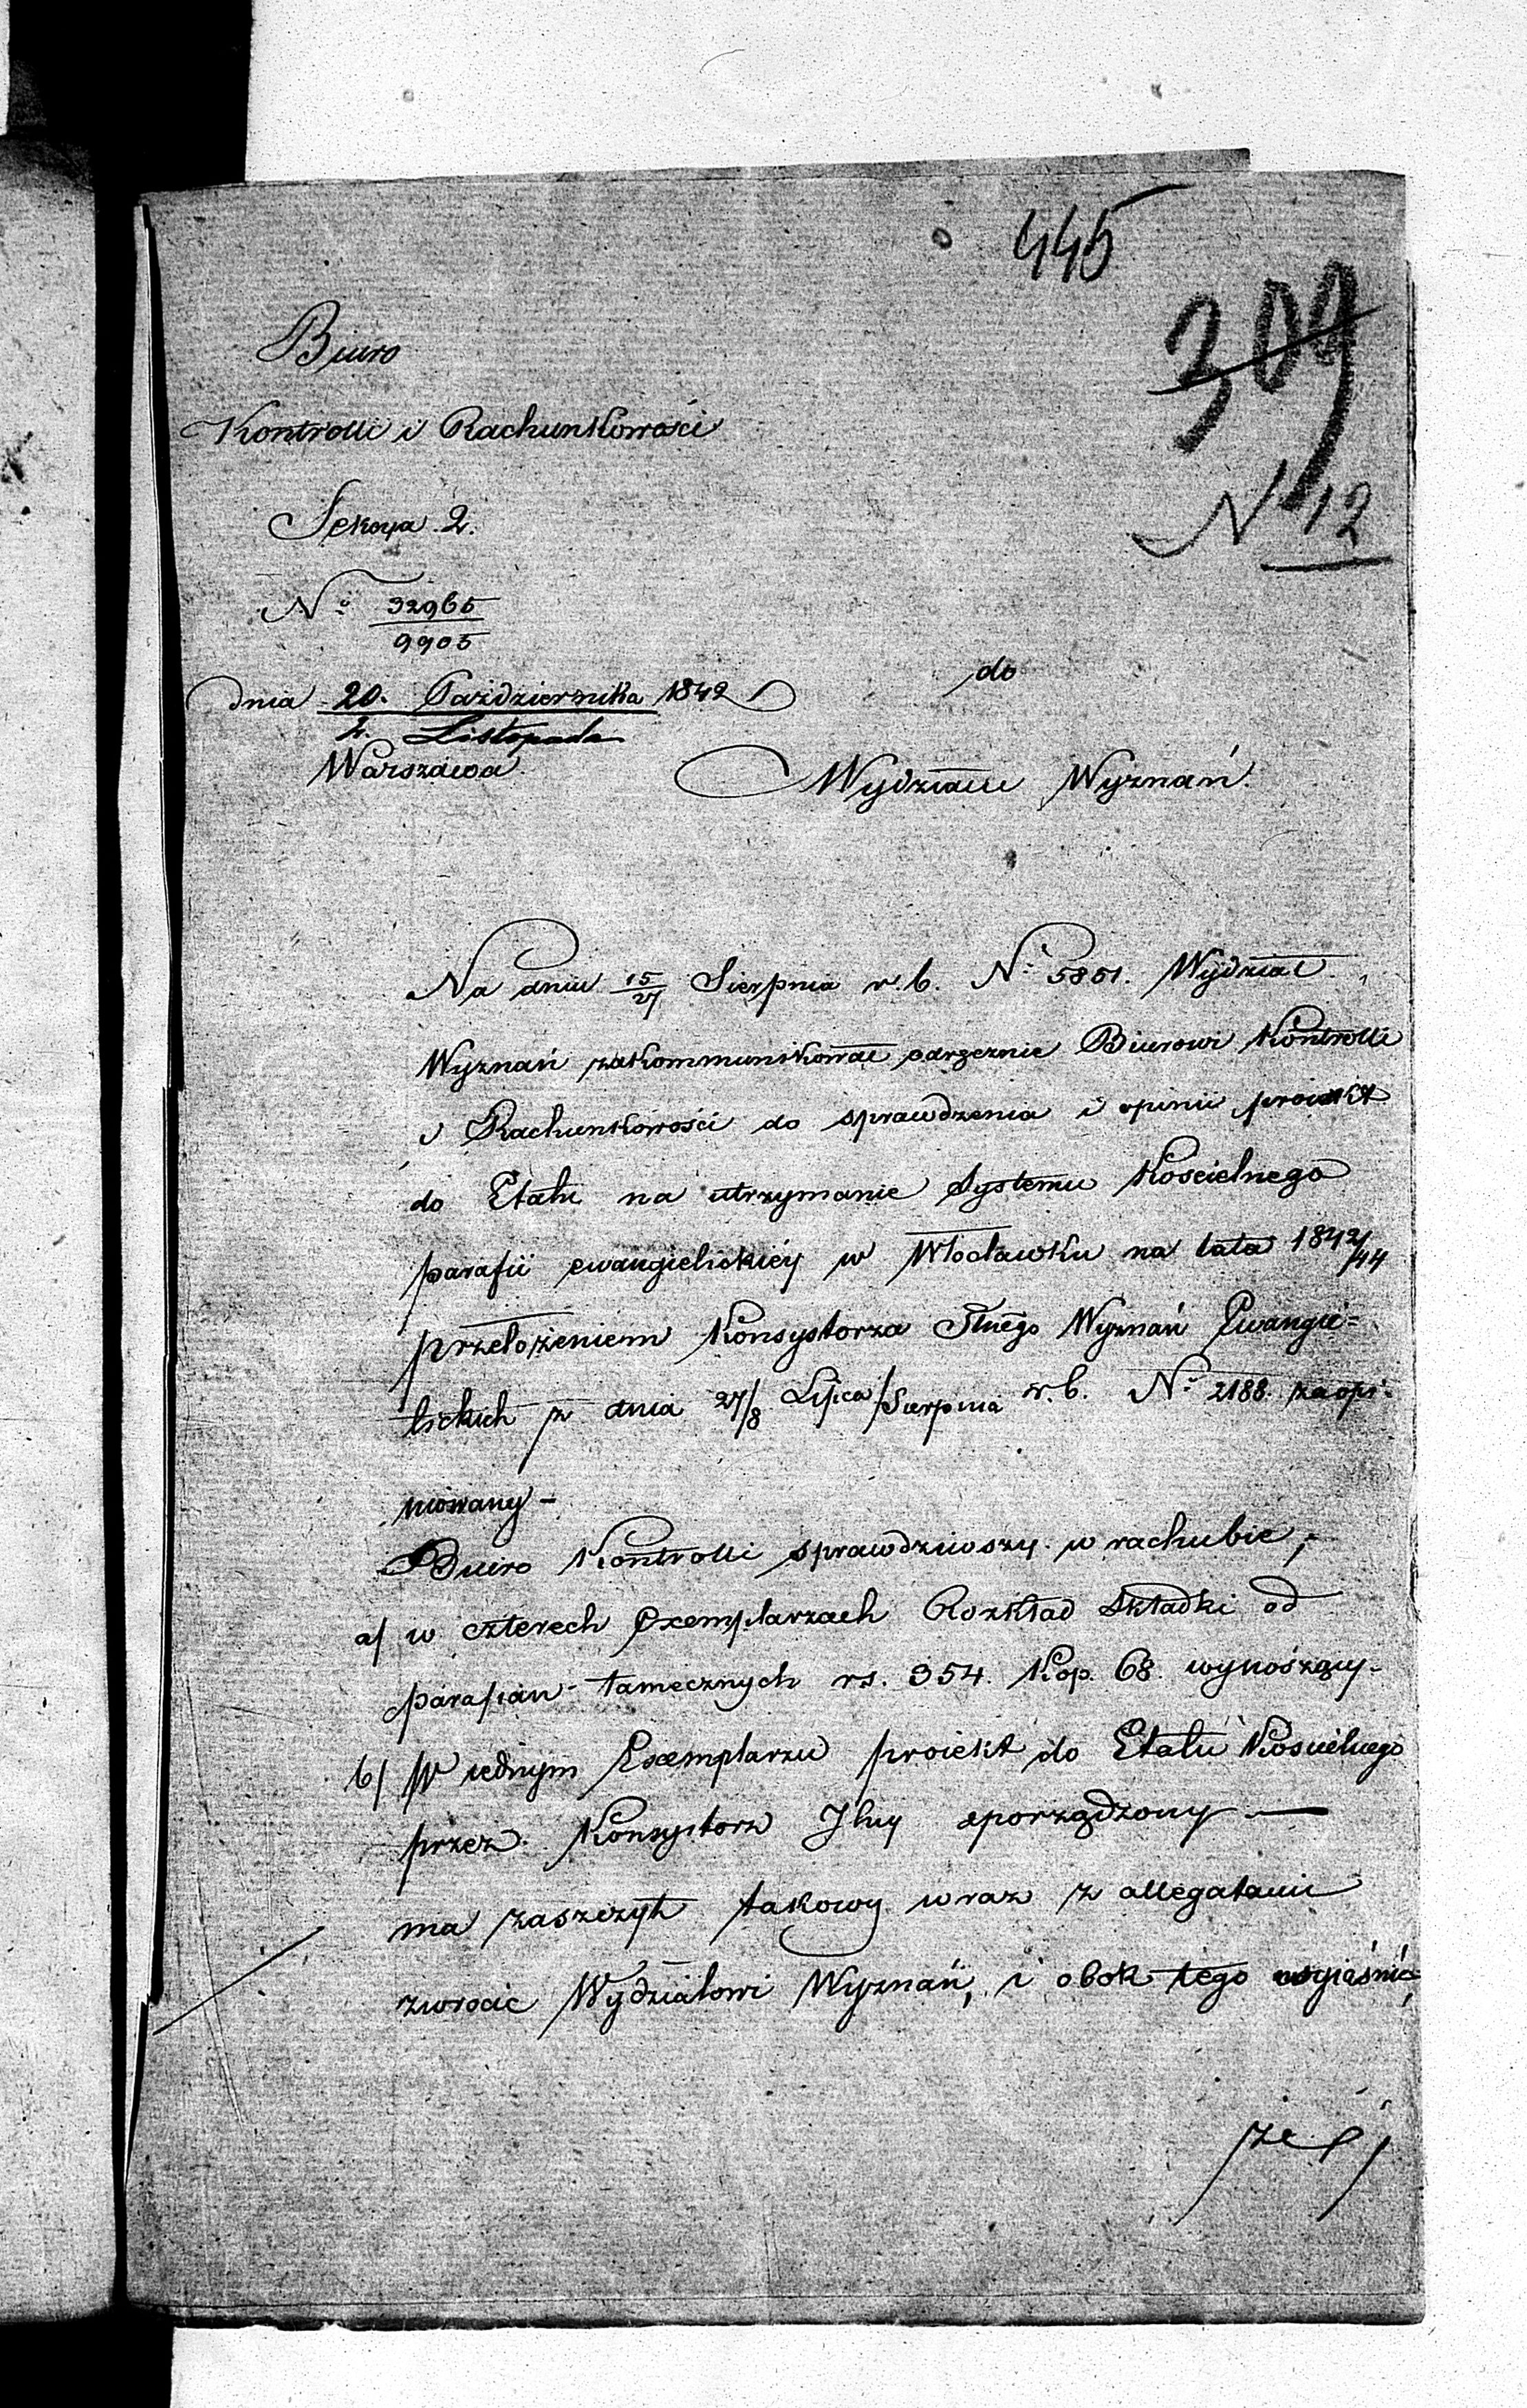 445
309
N 12
Biuro
Kontrolli i Rachunkowości
Sekcya 2.
No 32965
9905
dnia 20. Października 1842
2. Listopada
Warszawa.
do
Wydziału Wyznań.
Na dniu 15/27 Sierpnia r. b. No 5851. Wydział
Wyznań zakommunikował odręcznie Biurowi Kontrolli
i Rachunkowości do sprawdzenia i opinii proiekt
do Etatu na utrzymanie Systemu Kościelnego
parafii ewangielickiéy w Włocławku na lata 1842/44
przełożeniem Konsystorza Jlnego Wyznań Ewangie=
lickich z dnia 27/8 Lipca/Sierpnia r. b. No 2188. zaopi-
niowany -
Biuro Kontrolli sprawdziwszy w rachubie,
a/ w czterech Exemplarzach Rozkład składki od
parafian tamecznych rs. 354. Kop. 68 wynoszący -
b/ W iednym Exemplarzu proiekt do Etatu Kościelnego
przez Konsystorz Jlny sporządzony —
ma zaszczyt takowy wraz z allegatami
zwrócić Wydziałowi Wyznań, i obok tego wyiaśnić,
że